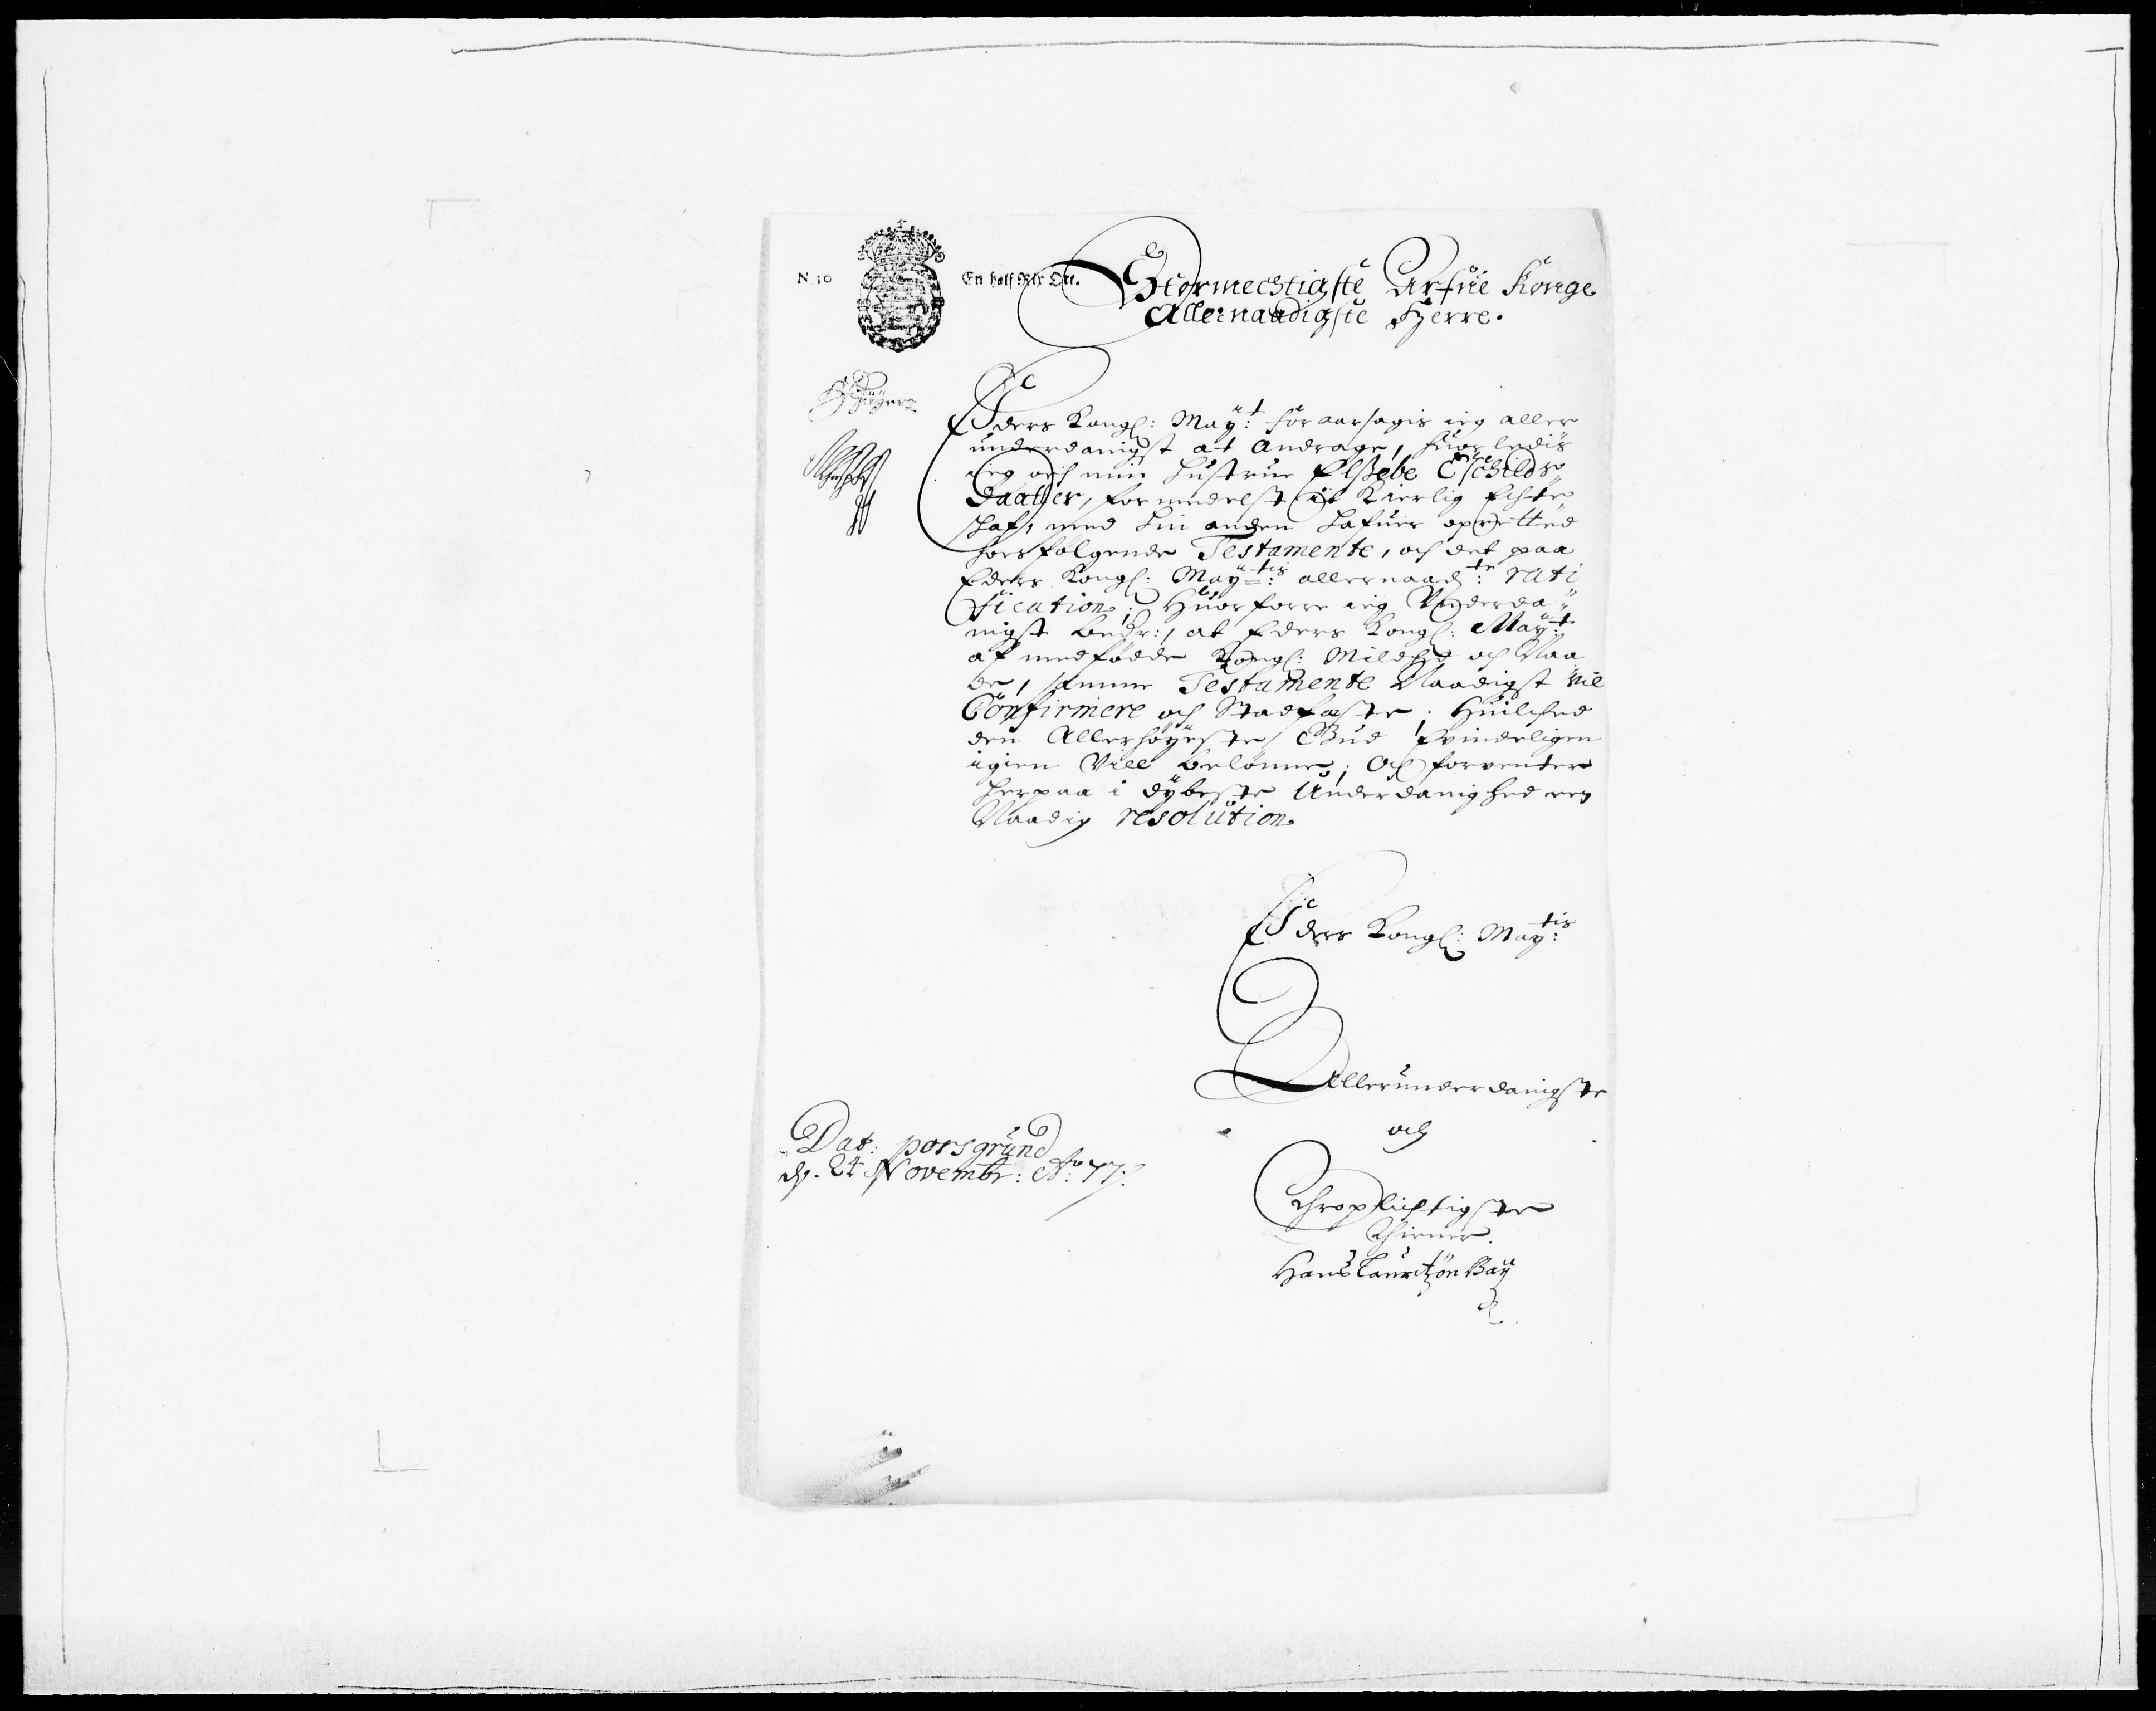 N. 10
En half Rix Ort.
Stormechtigste Arfüe Konge
Allernaadigste Herre.
Eders Kongl: Maÿt: foraarsagis ieg aller
underdanigst at andrage, huorledis
ieg och min Hustrue Elßebe Eschilds
daatter, formedelst it Kierlig Echte
skaf, med hin anden hafuer oprettéd
hoesfølgende Testamente, och det paa
Eders Kongl: Maÿtis: allernaadte: rati
fication; Huorforre ieg Vnderda
nigst beder:, at Eders Kongl: Maÿt:
af medfødde Kongl: Mildhed och Naa
de, samme Testamente Naadigst vil
Confirmere och Stadfæste; Huilched
den Allerhöyeste Gud Evindeligen
igien Vill belønne; Och forventer
herpaa i dÿbeste Underdanighed een
Naadig resolution.
Eders Kongl: Maytis:
Allerunderdanigste
och
Throplichtigste
Thiener.
Hans Lauritzön Baÿ
Dat: porsgrund
dn. 24 Novembr: Ao: 77.